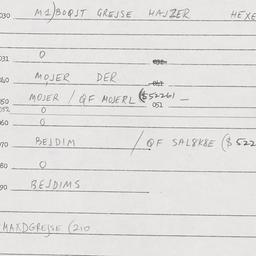 030 M1)BOQST GREJSE HAJZER HEXE
031 O
040 MOJER DER
050 MOJER / QF MOJERL ($52261 —
052 O 051
060 O
070 BEJDIM / QF SALYKYE ($522
080 O
090 BEJDIMS
MAXDGREJSE (210